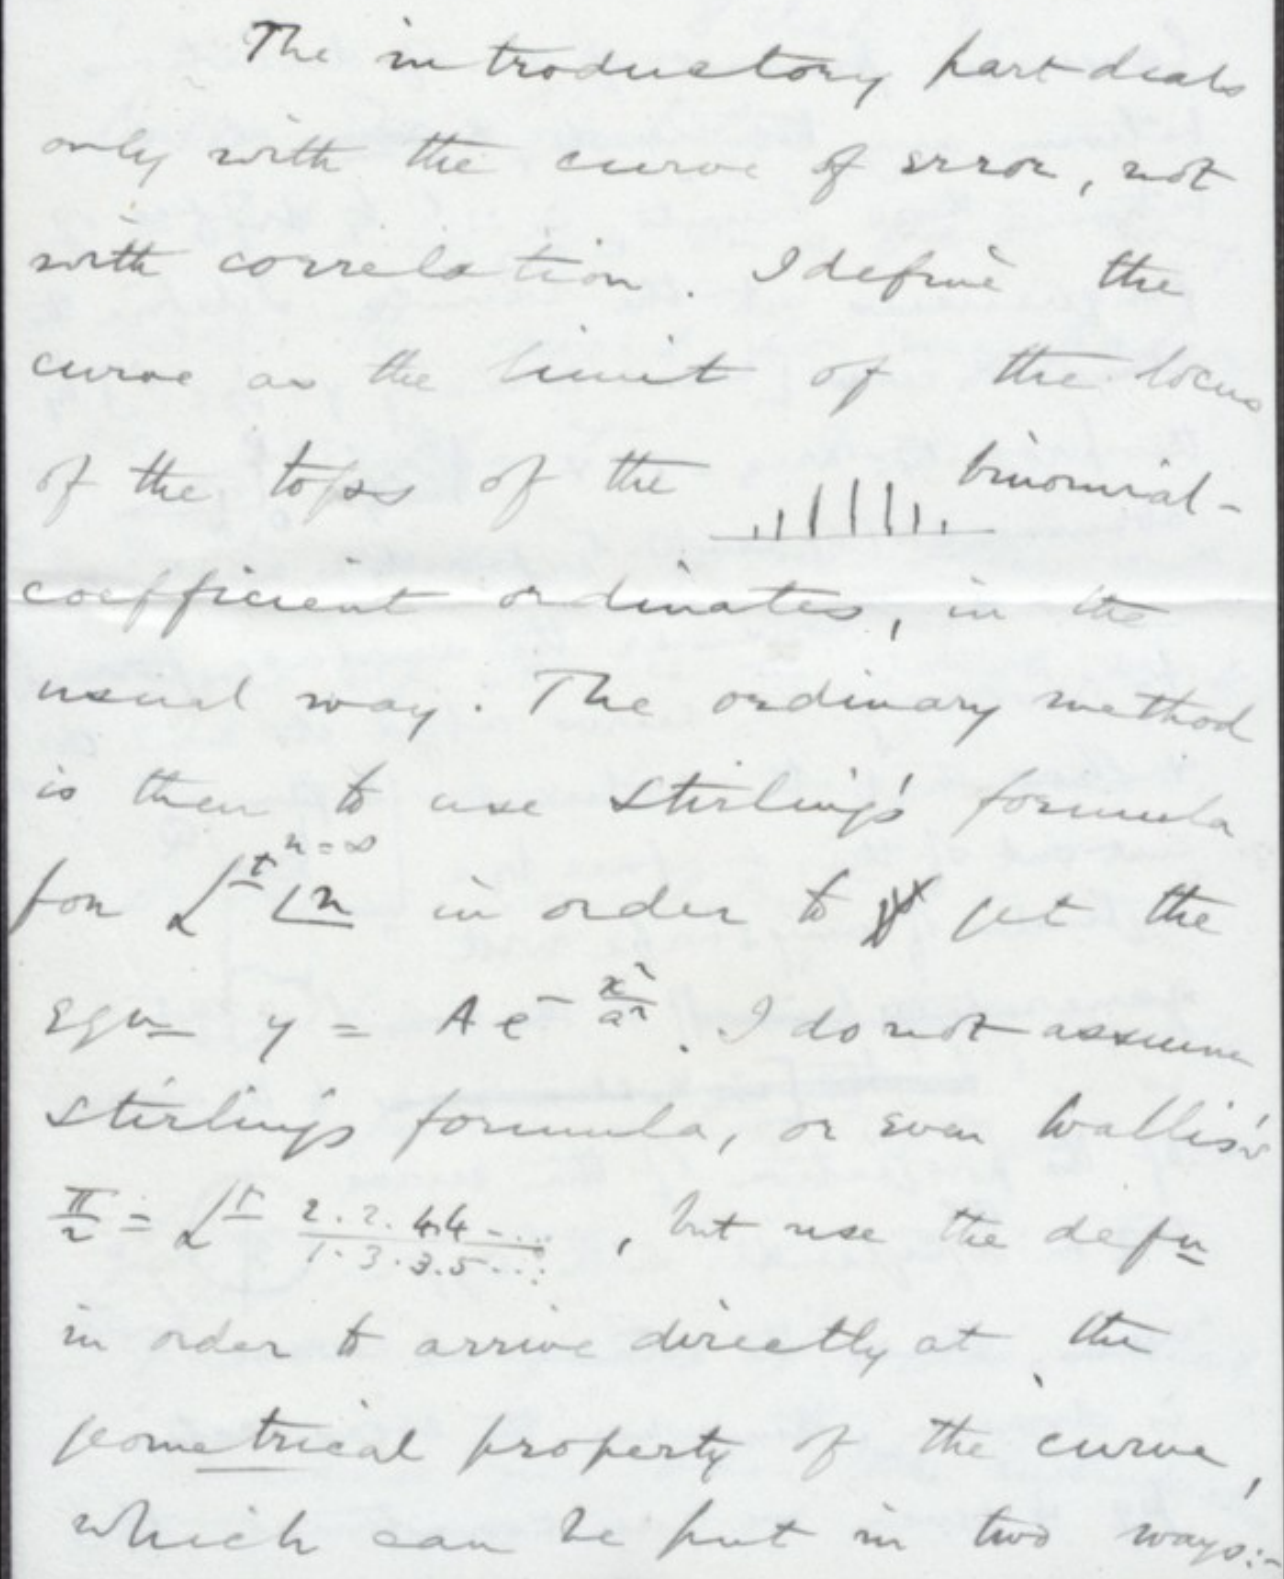 The introductory part deals
only with the curve of error, not
with correlation. I define the
curve as the limit of the locus
of the tops of the binomial-
coefficient ordinates, in the
usual way. The ordinary method
is then to use Stirling's formula
for Lt n=∞ |n in order to get the
Equn y = A e^-x²/a². I do not assume
Stirling's formula, or even Wallis's
π/2 = Lt 2.2.4.4..../1.3.3.5...., but use the defn
in order to arrive directly at the
geometrical property of the curve,
which can be put in two ways:-